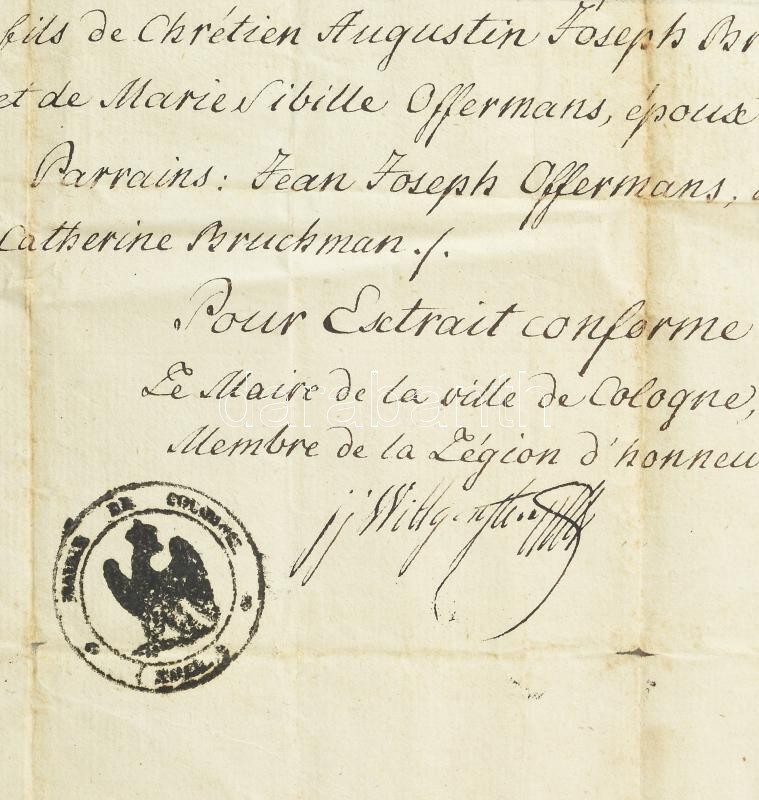 fils de Chrétien Augustin Joseph Br
et de Marie Sibille Offermans, époux
Parrains: Jean Joseph Offermans,
Catherine Bruchman ./.
Pour Extrait conforme
Le Maire de la ville de Cologne,
Membre de la Légion d'honneu
darabanth
MAIRIE DE COLOGNE